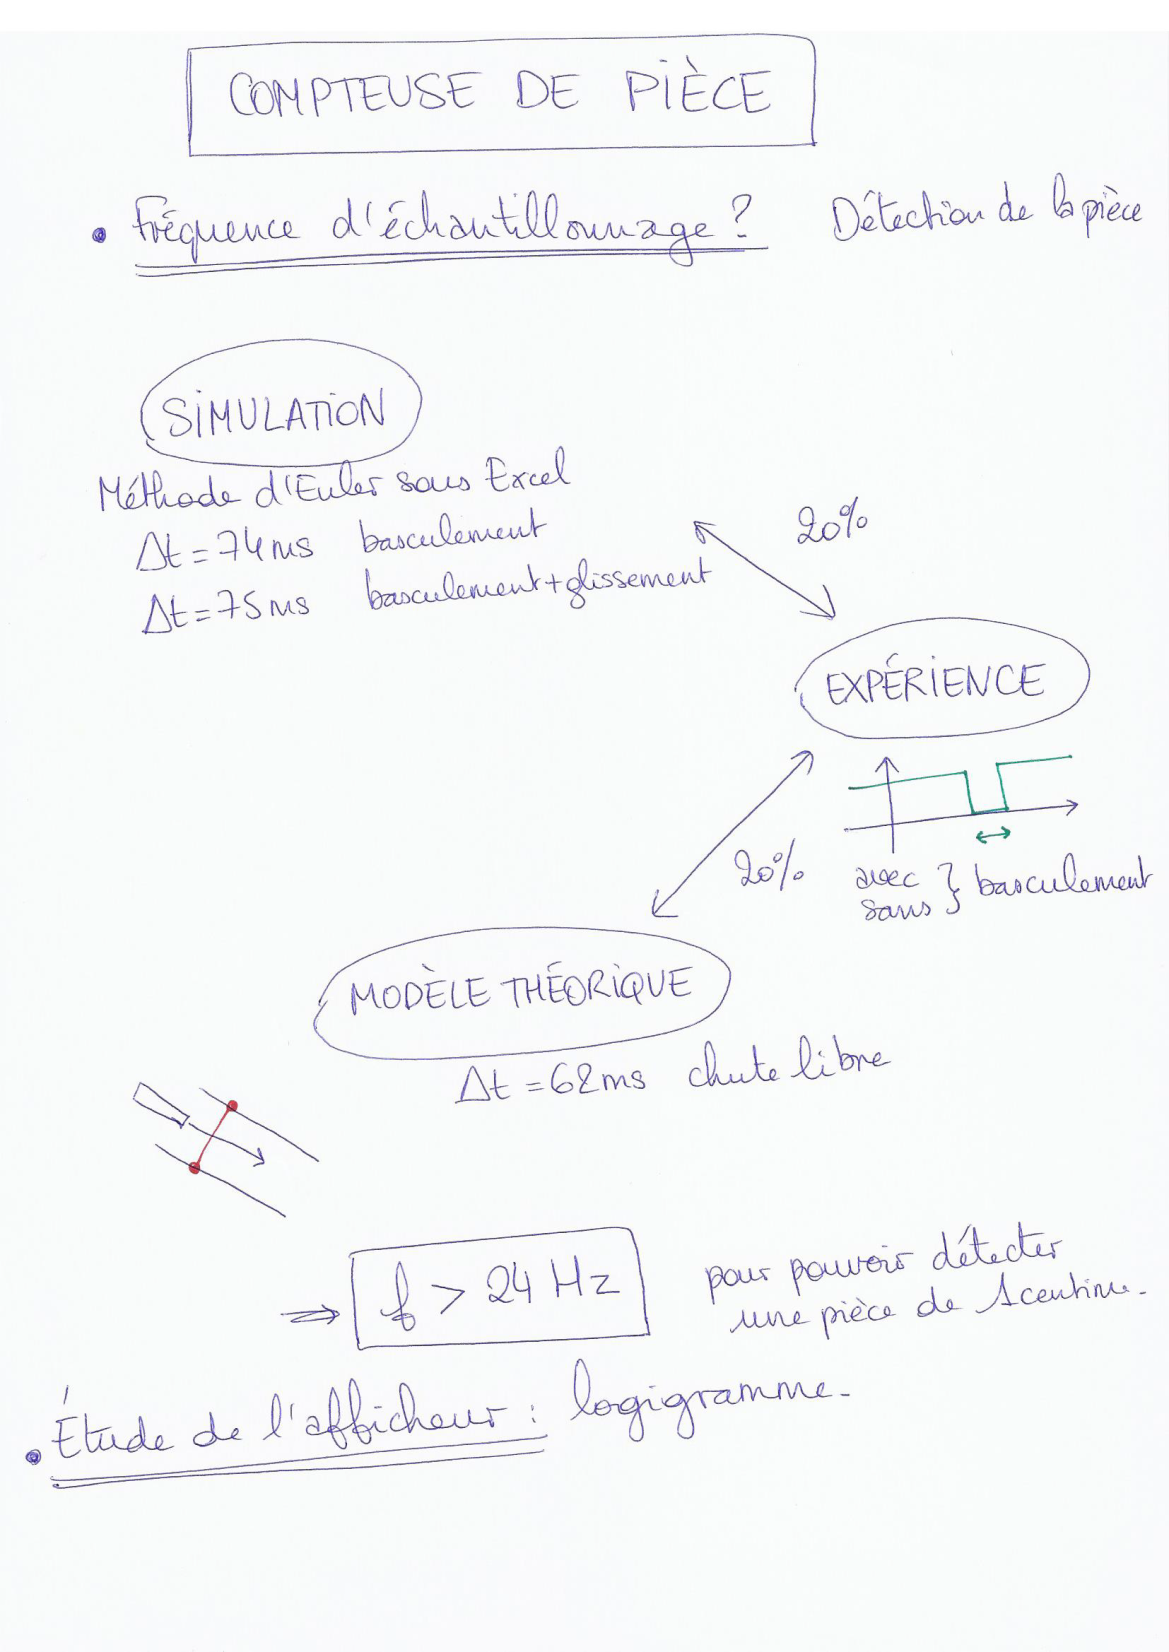 COMPTEUSE DE PIÈCE
• Fréquence d'échantillonnage ? Détection de la pièce
SIMULATION
Méthode d'Euler sous Excel
Δt = 74 ms basculement
Δt = 75 ms basculement + glissement
20%
EXPÉRIENCE
20%
avec } basculement
sans
MODÈLE THÉORIQUE
Δt = 62 ms chute libre
⇒ f > 24 Hz pour pouvoir détecter
une pièce de 1 centime.
• Étude de l'afficheur : logigramme.